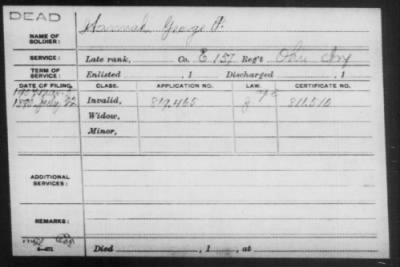 DEAD
NAME OF SOLDIER: Hannah George P.
SERVICE: Late rank, Co. E. 157 Reg't Ohio Inf
TERM OF SERVICE: Enlisted , 1 Discharged , 1
DATE OF FILING. CLASS. APPLICATION NO. LAW. CERTIFICATE NO.
1890 July 22 Invalid, 819.465
Widow,
Minor,
ADDITIONAL SERVICES:
REMARKS:
Died , 1 , at